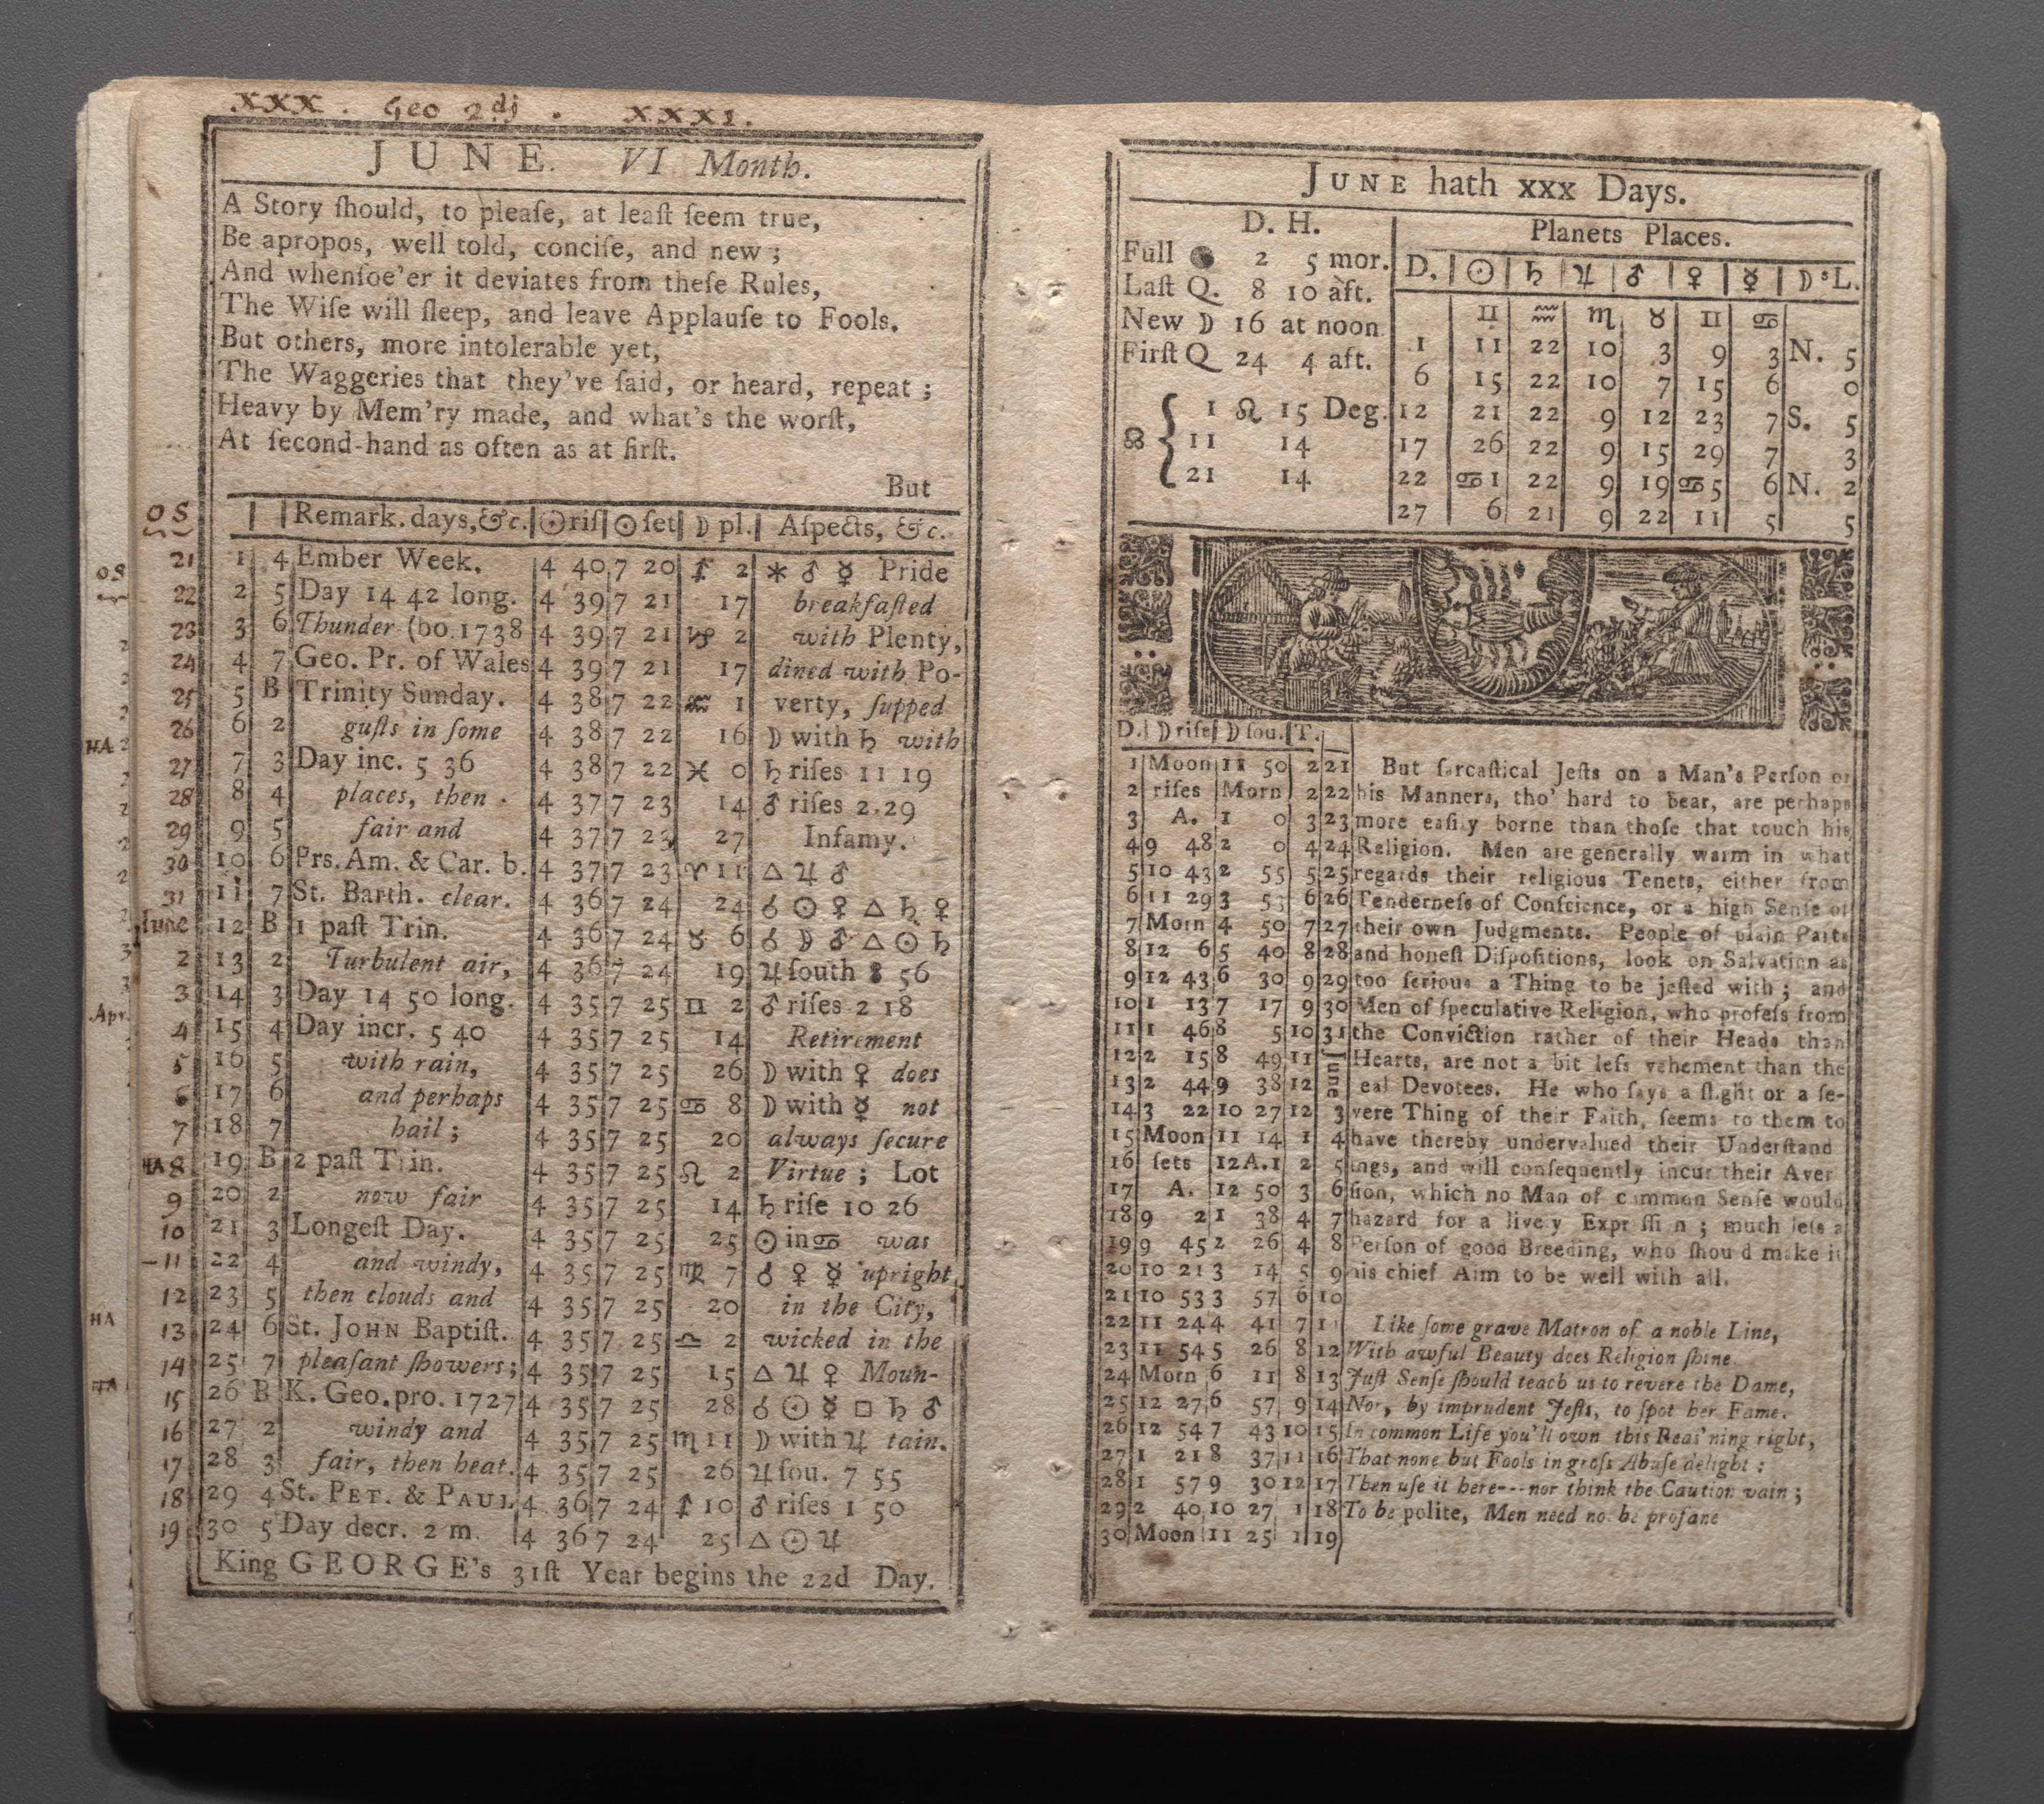 xxx. Geo 2di. xxxi.
JUNE. VI Month.
A Story ſhould, to pleaſe, at leaſt ſeem true,
Be apropos, well told, conciſe, and new ;
And whenſoe'er it deviates from theſe Rules,
The Wiſe will ſleep, and leave Applauſe to Fools.
But others, more intolerable yet,
The Waggeries that they've ſaid, or heard, repeat ;
Heavy by Mem'ry made, and what's the worſt,
At ſecond-hand as often as at firſt.
But
OS | | Remark. days, &c. | ☉ riſ | ☉ ſet | ☽ pl. | Aſpects, &c.
21 1 4 Ember Week. 4 40 7 20 ♐ 2 ⚹ ♂ ☿ Pride
22 2 5 Day 14 42 long. 4 39 7 21 17 breakfaſted
23 3 6 Thunder (bo. 1738 4 39 7 21 ♑ 2 with Plenty,
24 4 7 Geo. Pr. of Wales 4 39 7 21 17 dined with Po-
25 5 B Trinity Sunday. 4 38 7 22 ♒ 1 verty, ſupped
26 6 2 guſts in ſome 4 38 7 22 16 ☽ with ♄ with
27 7 3 Day inc. 5 36 4 38 7 22 ♓ 0 ♄ riſes 11 19
28 8 4 places, then 4 37 7 23 14 ♂ riſes 2 29
29 9 5 fair and 4 37 7 23 27 Infamy.
30 10 6 Prs. Am. & Car. b. 4 37 7 23 ♈ 11 △ ♃ ♂
31 11 7 St. Barth. clear. 4 36 7 24 24 ☌ ☉ ♀ △ ♄ ♀
June 12 B 1 paſt Trin. 4 36 7 24 ♉ 6 ☌ ☽ ♂ △ ☉ ♄
2 13 2 Turbulent air, 4 36 7 24 19 ♃ ſouth 8 56
3 14 3 Day 14 50 long. 4 35 7 25 ♊ 2 ♂ riſes 2 18
4 15 4 Day incr. 5 40 4 35 7 25 14 Retirement
5 16 5 with rain, 4 35 7 25 26 ☽ with ♀ does
6 17 6 and perhaps 4 35 7 25 ♋ 8 ☽ with ☿ not
7 18 7 hail ; 4 35 7 25 20 always ſecure
HA 8 19 B 2 paſt Trin. 4 35 7 25 ♌ 2 Virtue ; Lot
9 20 2 now fair 4 35 7 25 14 ♄ riſe 10 26
10 21 3 Longeſt Day. 4 35 7 25 25 ☉ in ♋ was
11 22 4 and windy, 4 35 7 25 ♍ 7 ☌ ♀ ☿ upright
12 23 5 then clouds and 4 35 7 25 20 in the City,
13 24 6 St. JOHN Baptiſt. 4 35 7 25 ♎ 2 wicked in the
14 25 7 pleaſant ſhowers; 4 35 7 25 15 △ ♃ ♀ Moun-
15 26 B K. Geo. pro. 1727 4 35 7 25 28 ☌ ☉ ☿ □ ♄ ♂
16 27 2 windy and 4 35 7 25 ♏ 11 ☽ with ♃ tain.
17 28 3 fair, then heat. 4 35 7 25 26 ♃ ſou. 7 55
18 29 4 St. PET. & PAUL 4 36 7 24 ♐ 10 ♂ riſes 1 50
19 30 5 Day decr. 2 m. 4 36 7 24 25 △ ☉ ♃
King GEORGE's 31ſt Year begins the 22d Day.
OS
HA
Apr.
HA
HA
JUNE hath xxx Days.
D. H.
Full ● 2 5 mor.
Laſt Q. 8 10 aft.
New ☽ 16 at noon
Firſt Q 24 4 aft.
☊ { 1 ♌ 15 Deg.
11 14
21 14
Planets Places.
D. | ☉ | ♄ | ♃ | ♂ | ♀ | ☿ | ☽'s L.
♊ ♒ ♏ ♉ ♊ ♋
1 11 22 10 3 9 3 N. 5
6 15 22 10 7 15 6 0
12 21 22 9 12 23 7 S. 5
17 26 22 9 15 29 7 3
22 ♋ 1 22 9 19 ♋ 5 6 N. 2
27 6 21 9 22 11 5 5
D. | ☽ riſe | ☽ ſou. | T.
1 Moon 11 50 2 21
2 riſes Morn 2 22
3 A. 1 0 3 23
4 9 48 2 0 4 24
5 10 43 2 55 5 25
6 11 29 3 53 6 26
7 Morn 4 50 7 27
8 12 6 5 40 8 28
9 12 43 6 30 9 29
10 1 13 7 17 9 30
11 1 46 8 5 10 31
12 2 15 8 49 11 June
13 2 44 9 38 12
14 3 22 10 27 12 3
15 Moon 11 14 1 4
16 ſets 12A.1 2 5
17 A. 12 50 3 6
18 9 2 1 38 4 7
19 9 45 2 26 4 8
20 10 21 3 14 5 9
21 10 53 3 57 6 10
22 11 24 4 41 7 1
23 11 54 5 26 8 12
24 Morn 6 11 8 13
25 12 27 6 57 9 14
26 12 54 7 43 10 15
27 1 21 8 37 11 16
28 1 57 9 30 12 17
29 2 40 10 27 1 18
30 Moon 11 25 1 19
But ſarcaſtical Jeſts on a Man's Perſon or
his Manners, tho' hard to bear, are perhaps
more eaſily borne than thoſe that touch his
Religion. Men are generally warm in what
regards their religious Tenets, either from
Tenderneſs of Conſcience, or a high Senſe of
their own Judgments. People of plain Parts
and honeſt Diſpoſitions, look on Salvation as
too ſerious a Thing to be jeſted with ; and
Men of ſpeculative Religion, who profeſs from
the Conviction rather of their Heads than
Hearts, are not a bit leſs vehement than the
eal Devotees. He who ſays a ſlight or a ſe-
vere Thing of their Faith, ſeems to them to
have thereby undervalued their Underſtand
ings, and will conſequently incur their Aver
ſion, which no Man of common Senſe would
hazard for a live y Expr ſſi n ; much leſs a
Perſon of good Breeding, who ſhou d make it
his chief Aim to be well with all.
Like ſome grave Matron of a noble Line,
With awful Beauty does Religion ſhine.
Juſt Senſe ſhould teach us to revere the Dame,
Nor, by imprudent Jeſts, to ſpot her Fame.
In common Life you'll own this Reas'ning right,
That none but Fools in groſs Abuſe delight :
Then uſe it here---nor think the Caution vain ;
To be polite, Men need no. be profane